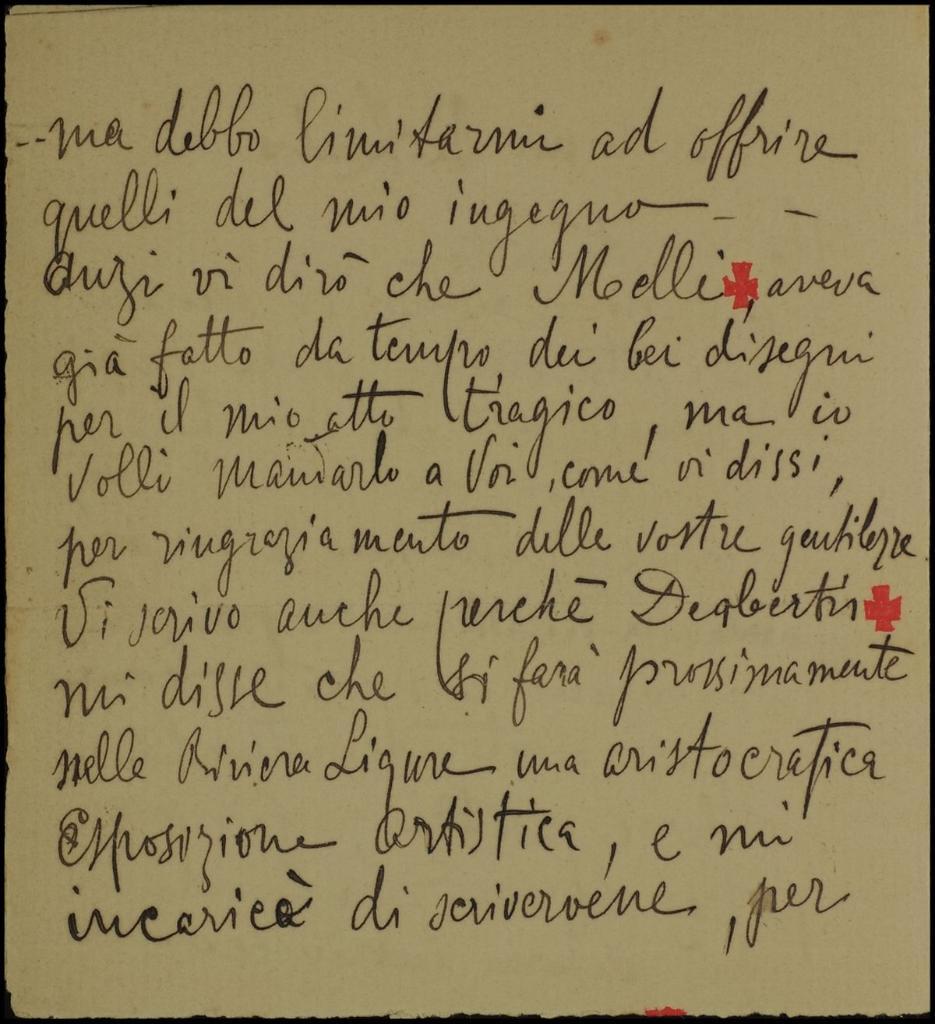 --ma debbo limitarmi ad offrire
quelli del mio ingegno - -
Anzi vi dirò che Melli, aveva
già fatto da tempo, dei bei disegni
per il mio atto tragico, ma io
volli mandarlo a Voi, come vi dissi,
per ringraziamento delle vostre gentilezze
Vi scrivo anche perchè Dealbertis
mi disse che si farà prossimamente
nella Riviera Ligure una aristocratica
Esposizione artistica, e mi
incaricò di scrivervene, per